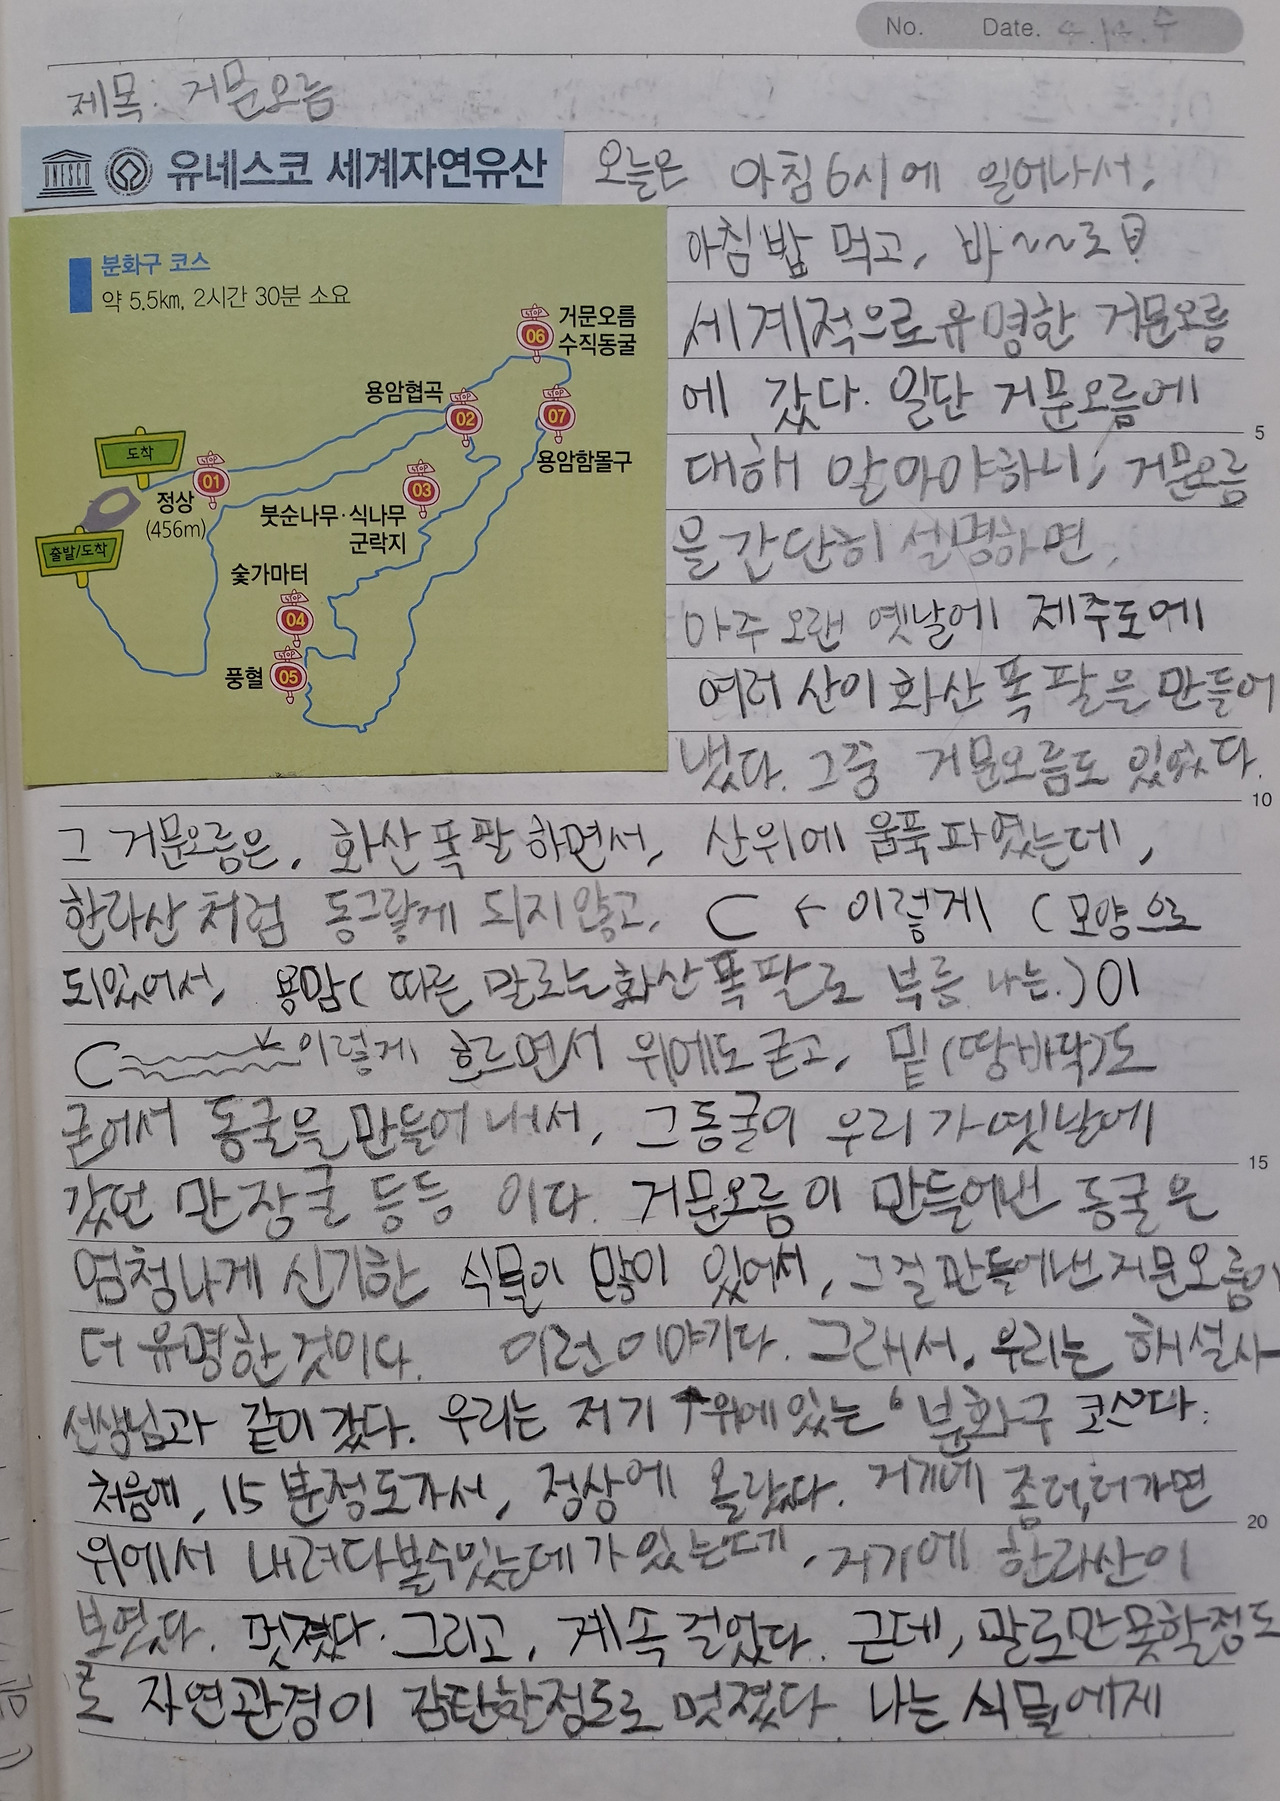 No. Date. 수
제목: 거문오름
유네스코 세계자연유산
분화구 코스
약 5.5km, 2시간 30분 소요
06 거문오름
수직동굴
용암협곡
02
07
용암함몰구
도착
01
정상
(456m)
03
붓순나무·식나무
군락지
출발/도착
숯가마터
04
풍혈 05
오늘은 아침 6시에 일어나서,
아침밥 먹고, 바~~로
세계적으로 유명한 거문오름
에 갔다. 일단 거문오름에
대해 알아야하니, 거문오름
을 간단히 설명하면,
아주 오랜 옛날에 제주도에
여러 산이 화산 폭팔을 만들어
냈다. 그중 거문오름도 있었다.
그 거문오름은, 화산 폭팔하면서, 산위에 움푹파였는데,
한라산처럼 동그랗게 되지않고, ⊂ ← 이렇게 ( 모양으로
되있어서, 용암( 따른 말로는 화산폭팔로 부른 나는.)이
⊂ 이렇게 흐르면서 위에도 굳고, 밑(땅바닥)도
굳어서 동굴을 만들어 내서, 그동굴이 우리가 옛날에
갔던 만장굴 등등 이다. 거문오름이 만들어낸 동굴은
엄청나게 신기한 식물이 많이 있어서, 그걸만들어낸 거문오름이
더 유명한것이다. 이런이야기다. 그래서, 우리는 해설사
선생님과 같이 갔다. 우리는 저기 ↑위에있는 "분화구 코스"다.
처음에, 15분정도가서, 정상에 올랐다. 거기에 좀더,더가면
위에서 내려다볼수있는데가 있는데, 거기에 한라산이
보였다. 멋졌다. 그리고, 계속 걸었다. 근데, 말로만못할정도
로 자연관경이 감탄할정도로 멋졌다 나는 식물에게
5
10
15
20